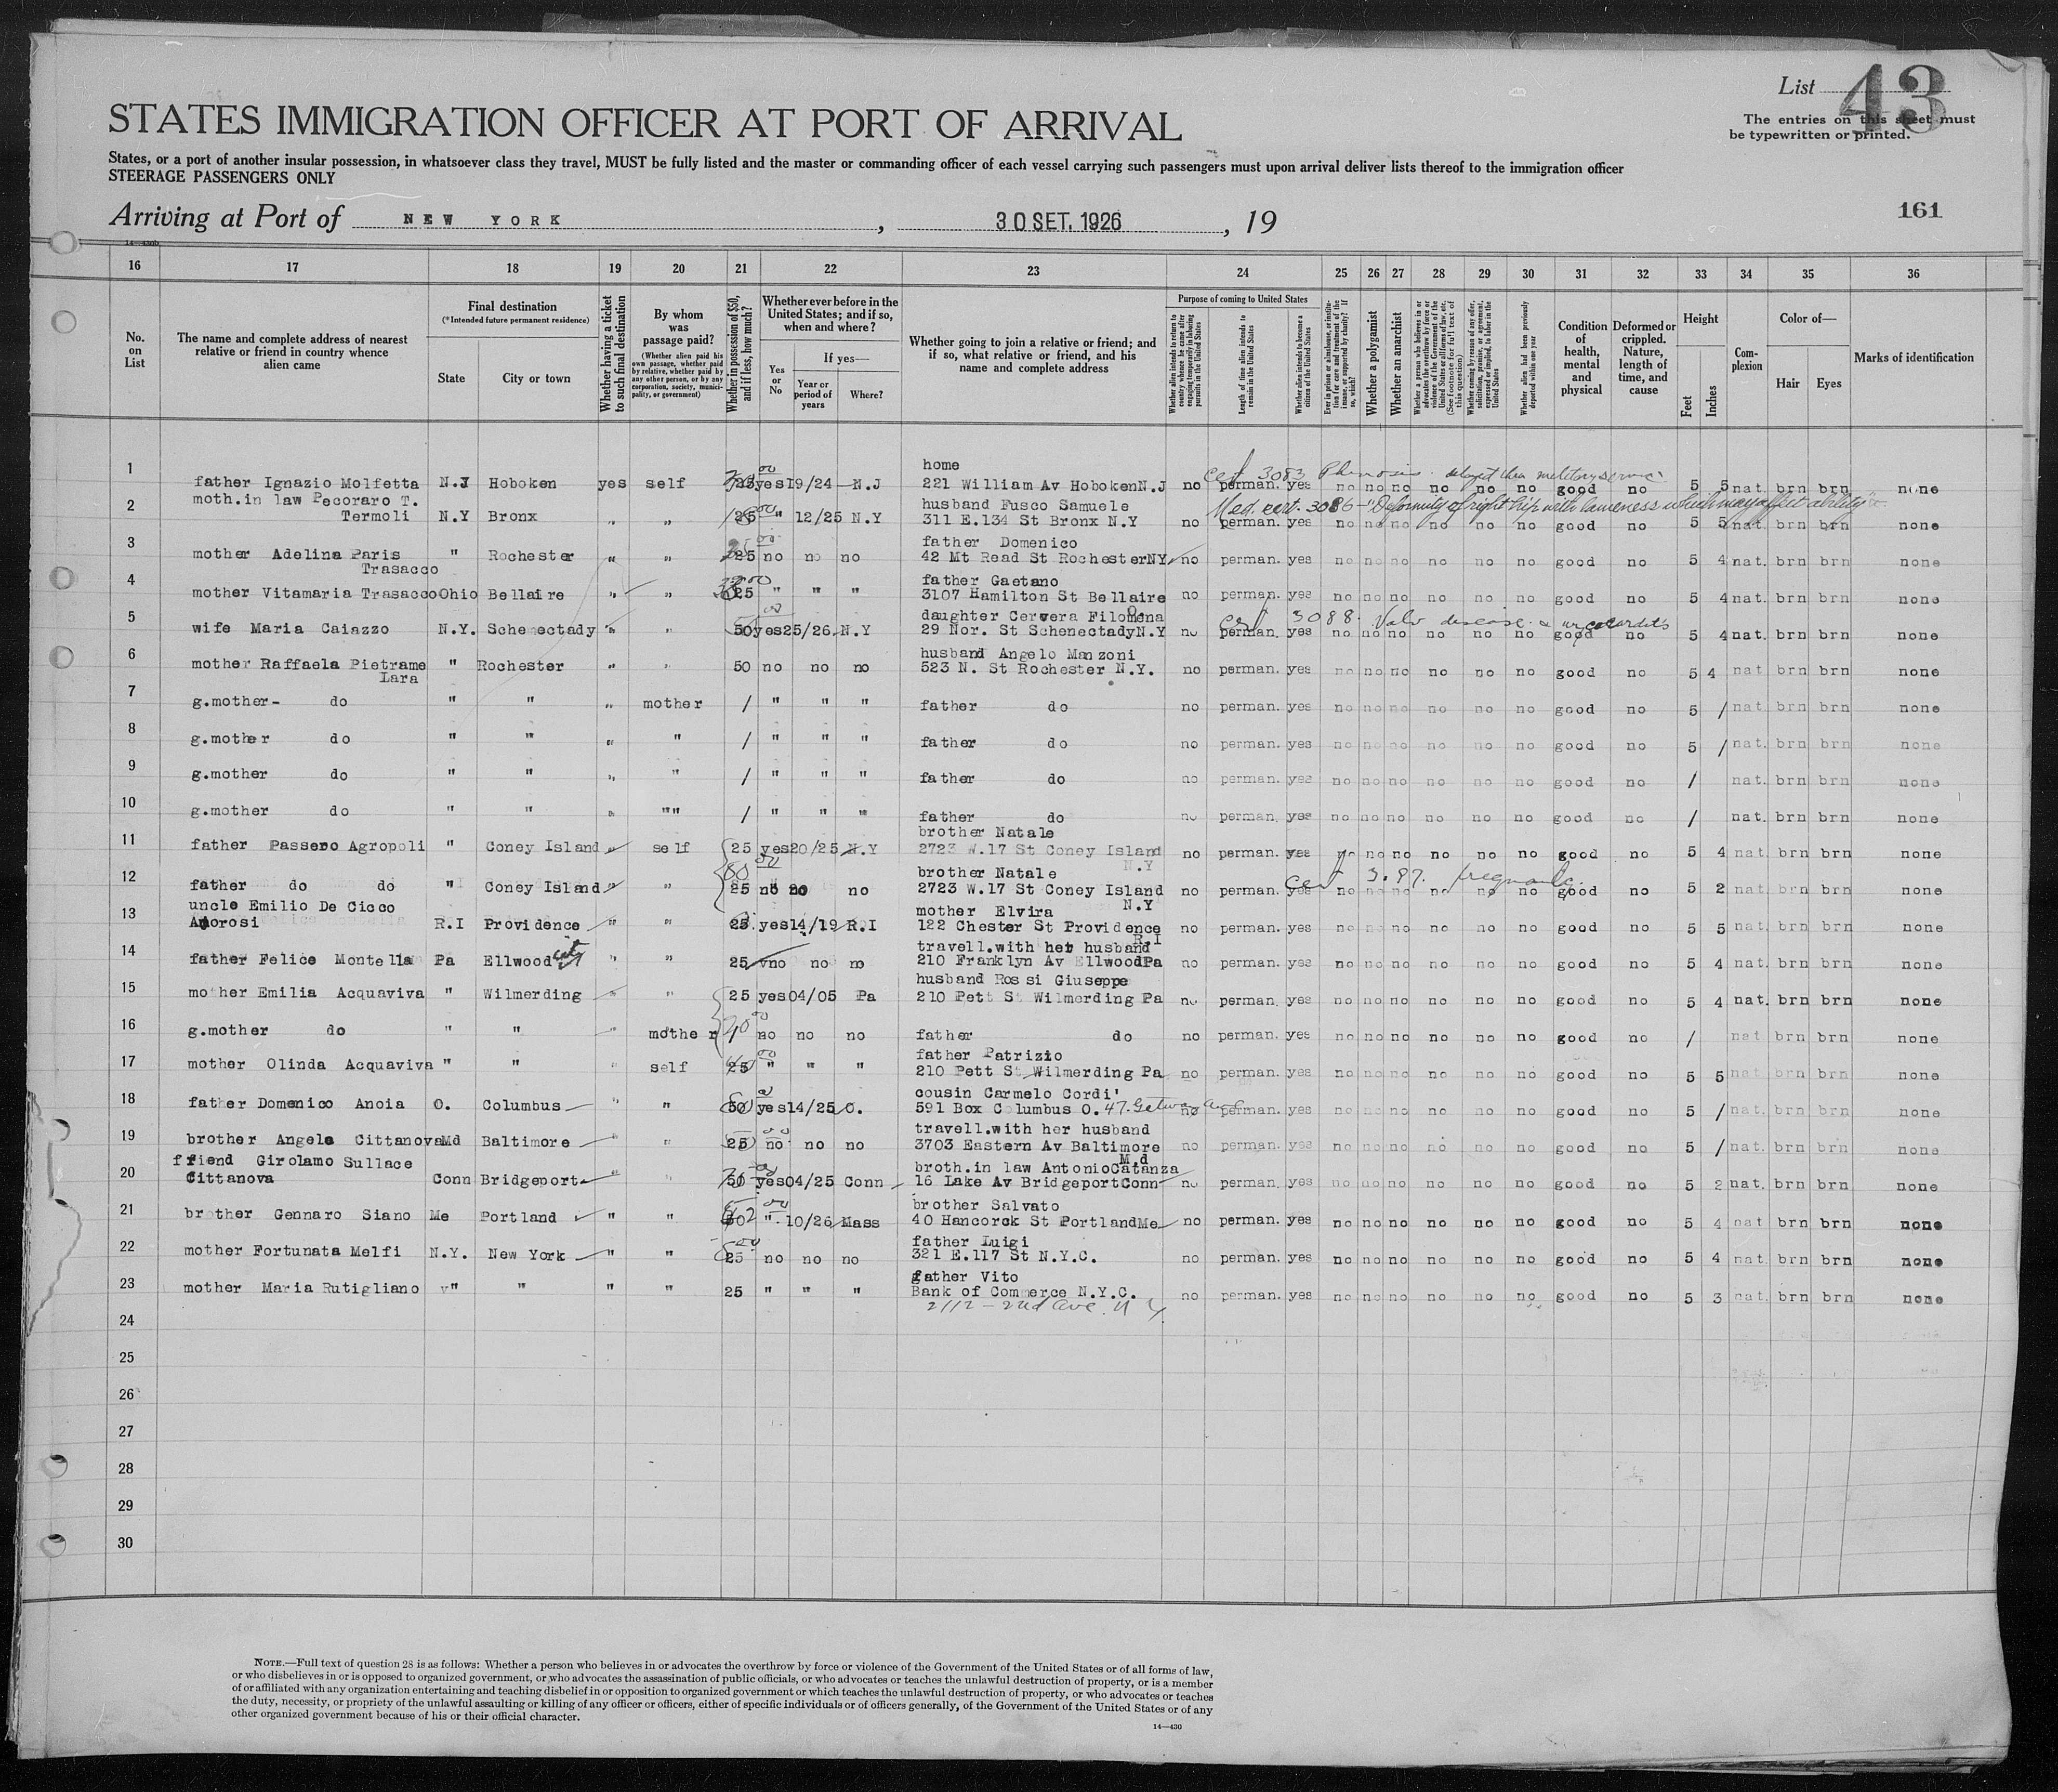 List 43
The entries on this sheet must
be typewritten or printed.
STATES IMMIGRATION OFFICER AT PORT OF ARRIVAL
States, or a port of another insular possession, in whatsoever class they travel, MUST be fully listed and the master or commanding officer of each vessel carrying such passengers must upon arrival deliver lists thereof to the immigration officer
STEERAGE PASSENGERS ONLY
161
Arriving at Port of NEW YORK, 30 SET. 1926, 19
16 17 18 19 20 21 22 23 24 25 26 27 28 29 30 31 32 33 34 35 36
No. on List
The name and complete address of nearest relative or friend in country whence alien came
Final destination
(*Intended future permanent residence)
State
City or town
Whether having a ticket to such final destination
By whom was passage paid?
(Whether alien paid his own passage, whether paid by relative, whether paid by any other person, or by any corporation, society, municipality, or government)
Whether in possession of $50, and if less, how much?
Whether ever before in the United States; and if so, when and where?
If yes—
Yes or No
Year or period of years
Where?
Whether going to join a relative or friend; and if so, what relative or friend, and his name and complete address
Purpose of coming to United States
Whether alien intends to return to country whence he came after engaging temporarily in laboring pursuits in the United States
Length of time alien intends to remain in the United States
Whether alien intends to become a citizen of the United States
Whether a polygamist
Whether an anarchist
Whether alien had been previously deported within one year
Condition of health, mental and physical
Deformed or crippled. Nature, length of time, and cause
Height
Feet
Inches
Complexion
Color of—
Hair
Eyes
Marks of identification
1 home
father Ignazio Molfetta N.J Hoboken yes self yes 19/24 N.J 221 William Av Hoboken N.J no perman. yes no no no no no no good no 5 5 nat. brn brn none
cert 3083 Phimosis
2 moth.in law Pecoraro T. husband Fusco Samuele
Termoli N.Y Bronx " " 25 " 12/25 N.Y 311 E.134 St Bronx N.Y no perman. yes no no no no no no good no 5 5 nat. brn brn none
Med. cert. 3086 - "Deformity of right hip with lameness which may affect ability"
3 father Domenico
mother Adelina Paris " Rochester " " 25 no no no 42 Mt Read St Rochester NY no perman. yes no no no no no no good no 5 4 nat. brn brn none
Trasacco
4 father Gaetano
mother Vitamaria Trasacco Ohio Bellaire " " 25 " " " 3107 Hamilton St Bellaire no perman. yes no no no no no no good no 5 4 nat. brn brn none
5 daughter Cervera Filomena O.
wife Maria Caiazzo N.Y. Schenectady " " 50 yes 25/26 N.Y 29 Nor. St Schenectady N.Y no perman. yes no no no no no no good no 5 4 nat. brn brn none
cert 3088. Valv disease
6 husband Angelo Manzoni
mother Raffaela Pietrame " Rochester " " 50 no no no 523 N. St Rochester N.Y. no perman. yes no no no no no no good no 5 4 nat brn brn none
Lara
7 g.mother- do " " " mother / " " " father do no perman. yes no no no no no no good no 5 / nat. brn brn none
8 g.mother do " " " " / " " " father do no perman. yes no no no no no no good no 5 / nat. brn brn none
9 g.mother do " " " " / " " " father do no perman. yes no no no no no no good no / nat. brn brn none
10 g.mother do " " " "" / " " " father do no perman. yes no no no no no no good no / nat. brn brn none
11 brother Natale
father Passero Agropoli " Coney Island " self 25 yes 20/25 N.Y 2723 W.17 St Coney Island no perman. yes no no no no no no good no 5 4 nat brn brn none
N.Y
12 brother Natale
father do do " Coney Island " " 25 no no no 2723 W.17 St Coney Island no perman. yes no no no no no no good no 5 2 nat brn brn none
N.Y
13 uncle Emilio De Cicco mother Elvira
Amorosi R.I Providence " " 25 yes 14/19 R.I 122 Chester St Providence no perman. yes no no no no no no good no 5 5 nat brn brn none
R.I
14 travell.with her husband
father Felice Montella Pa Ellwood city " " 25 no no no 210 Franklyn Av Ellwood Pa no perman. yes no no no no no no good no 5 4 nat. brn brn none
15 husband Rossi Giuseppe
mother Emilia Acquaviva " Wilmerding " 25 yes 04/05 Pa 210 Pett St Wilmerding Pa no perman. yes no no no no no no good no 5 4 nat. brn brn none
16 g.mother do " " mother no no no father do no perman. yes no no no no no no good no / nat brn brn none
17 father Patrizio
mother Olinda Acquaviva " " " self 25 " " " 210 Pett St Wilmerding Pa no perman. yes no no no no no no good no 5 5 nat brn brn none
18 cousin Carmelo Cordi'
father Domenico Anoia O. Columbus " " 50 yes 14/25 O. 591 Box Columbus O. no perman. yes no no no no no no good no 5 / nat. brn brn none
19 travell.with her husband
brother Angelo Cittanova Md Baltimore " " 25 no no no 3703 Eastern Av Baltimore no perman. yes no no no no no no good no 5 / nat. brn brn none
Md
20 friend Girolamo Sullace broth.in law Antonio Catanza
Cittanova Conn Bridgeport " " 50 yes 04/25 Conn 16 Lake Av Bridgeport Conn no perman. yes no no no no no no good no 5 2 nat. brn brn none
21 brother Salvato
brother Gennaro Siano Me Portland " " " 10/26 Mass 40 Hancorck St Portland Me no perman. yes no no no no no no good no 5 4 nat brn brn none
22 father Luigi
mother Fortunata Melfi N.Y. New York " " 25 no no no 321 E.117 St N.Y.C. no perman. yes no no no no no no good no 5 4 nat. brn brn none
23 father Vito
mother Maria Rutigliano " " " " 25 " " " Bank of Commerce N.Y.C. no perman. yes no no no no no no good no 5 3 nat. brn brn none
2112 - 2nd Ave. N Y
24
25
26
27
28
29
30
NOTE.—Full text of question 28 is as follows: Whether a person who believes in or advocates the overthrow by force or violence of the Government of the United States or of all forms of law,
or who disbelieves in or is opposed to organized government, or who advocates the assassination of public officials, or who advocates or teaches the unlawful destruction of property, or is a member
of or affiliated with any organization entertaining and teaching disbelief in or opposition to organized government or which teaches the unlawful destruction of property, or who advocates or teaches
the duty, necessity, or propriety of the unlawful assaulting or killing of any officer or officers, either of specific individuals or of officers generally, of the Government of the United States or of any
other organized government because of his or their official character.
14—430